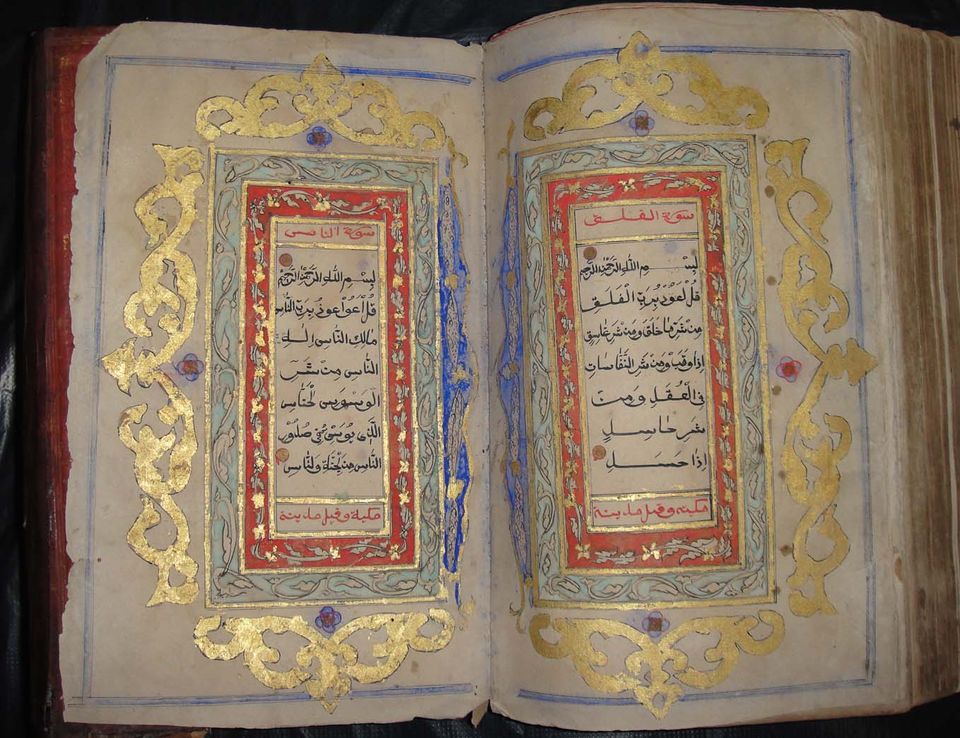 سورة الفلق
بسم الله الرحمن الرحيم
قل اعوذ برب الفلق
من شر ما خلق ومن شر غاسق
اذا وقب ومن شر النفاثات
في العقد ومن
شر حاسد
اذا حسد
مكية وقيل مدينة
سورة الناس
بسم الله الرحمن الرحيم
قل اعوذ برب الناس
مالك الناس اله
الناس من شر
الوسوس الخناس
الذي يوسوس في صدور
الناس من الجنة والناس
مكية وقيل مدينة